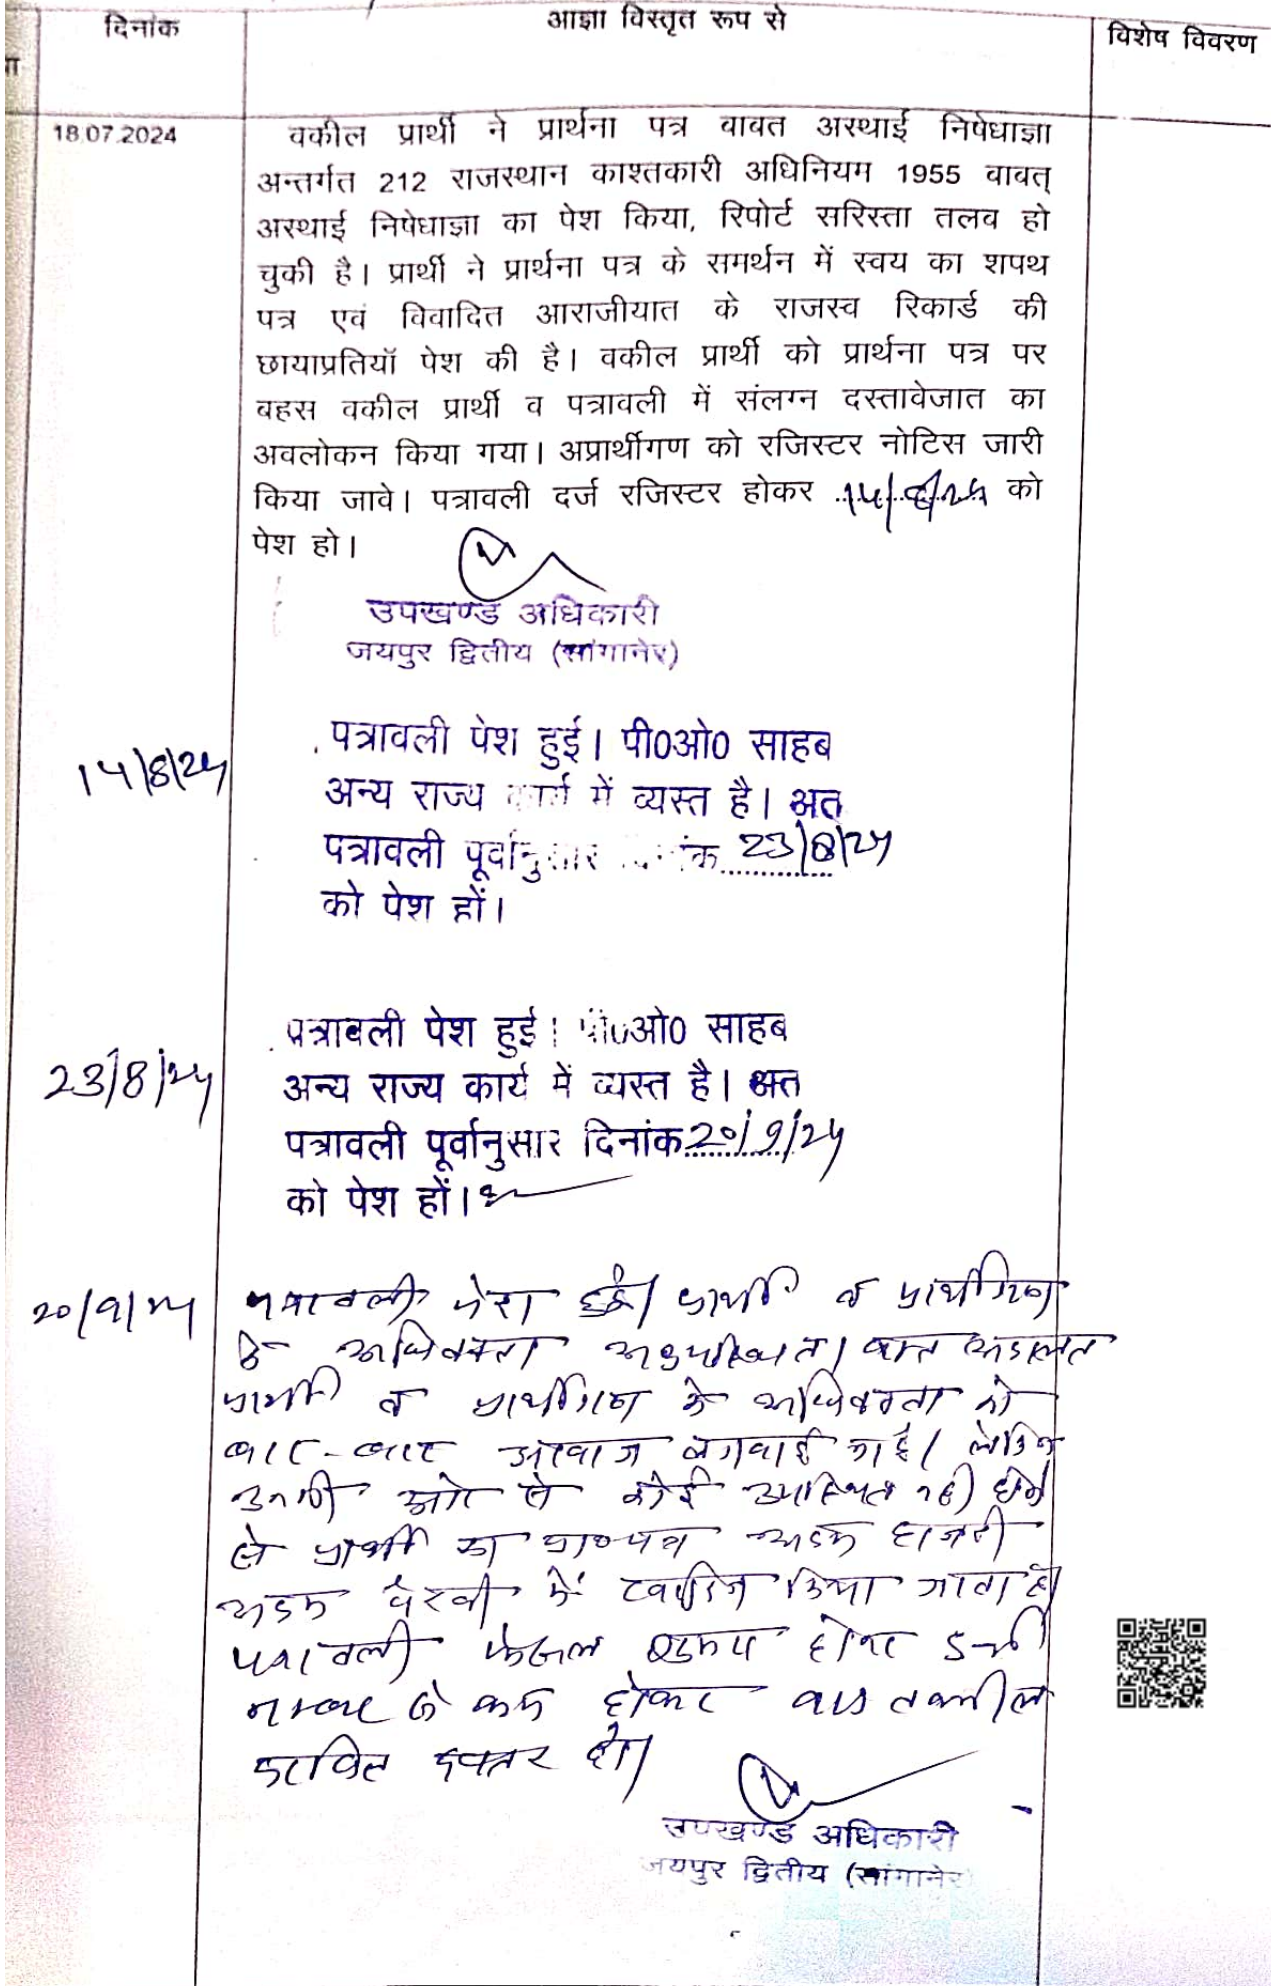 दिनांक
आज्ञा विस्तृत रूप से
विशेष विवरण
18.07.2024
वकील प्रार्थी ने प्रार्थना पत्र वावत अस्थाई निषेधाज्ञा
अन्तर्गत 212 राजस्थान काश्तकारी अधिनियम 1955 वावत्
अस्थाई निषेधाज्ञा का पेश किया, रिपोर्ट सरिस्ता तलव हो
चुकी है। प्रार्थी ने प्रार्थना पत्र के समर्थन में स्वय का शपथ
पत्र एवं विवादित आराजीयात के राजस्व रिकार्ड की
छायाप्रतियॉ पेश की है। वकील प्रार्थी को प्रार्थना पत्र पर
बहस वकील प्रार्थी व पत्रावली में संलग्न दस्तावेजात का
अवलोकन किया गया। अप्रार्थीगण को रजिस्टर नोटिस जारी
किया जावे। पत्रावली दर्ज रजिस्टर होकर 14/8/24 को
पेश हो।
उपखण्ड अधिकारी
जयपुर द्वितीय (सांगानेर)
14/8/24
पत्रावली पेश हुई। पी0ओ0 साहब
अन्य राज्य कार्य में व्यस्त है। अत
पत्रावली पूर्वानुसार दिनांक 23/8/24
को पेश हों।
23/8/24
पत्रावली पेश हुई। पी0ओ0 साहब
अन्य राज्य कार्य में व्यस्त है। अत
पत्रावली पूर्वानुसार दिनांक 20/9/24
को पेश हों।
20/9/24
पत्रावली पेश हुई। प्रार्थी व प्रार्थीगण
के अधिवक्ता अनुपस्थित।
प्रार्थी व प्रार्थीगण के अधिवक्ता को
बार-बार आवाज लगवाई गई। लेकिन
उनकी ओर से कोई उपस्थित नही होने
से प्रार्थी का प्रा०पत्र अदम हाजरी
अदम पैरवी में खारिज किया जाता है।
पत्रावली फैसल शुमार होकर
नम्बर से कम होकर बाद तकमील
दाखिल दफ्तर हो।
उपखण्ड अधिकारी
जयपुर द्वितीय (सांगानेर)